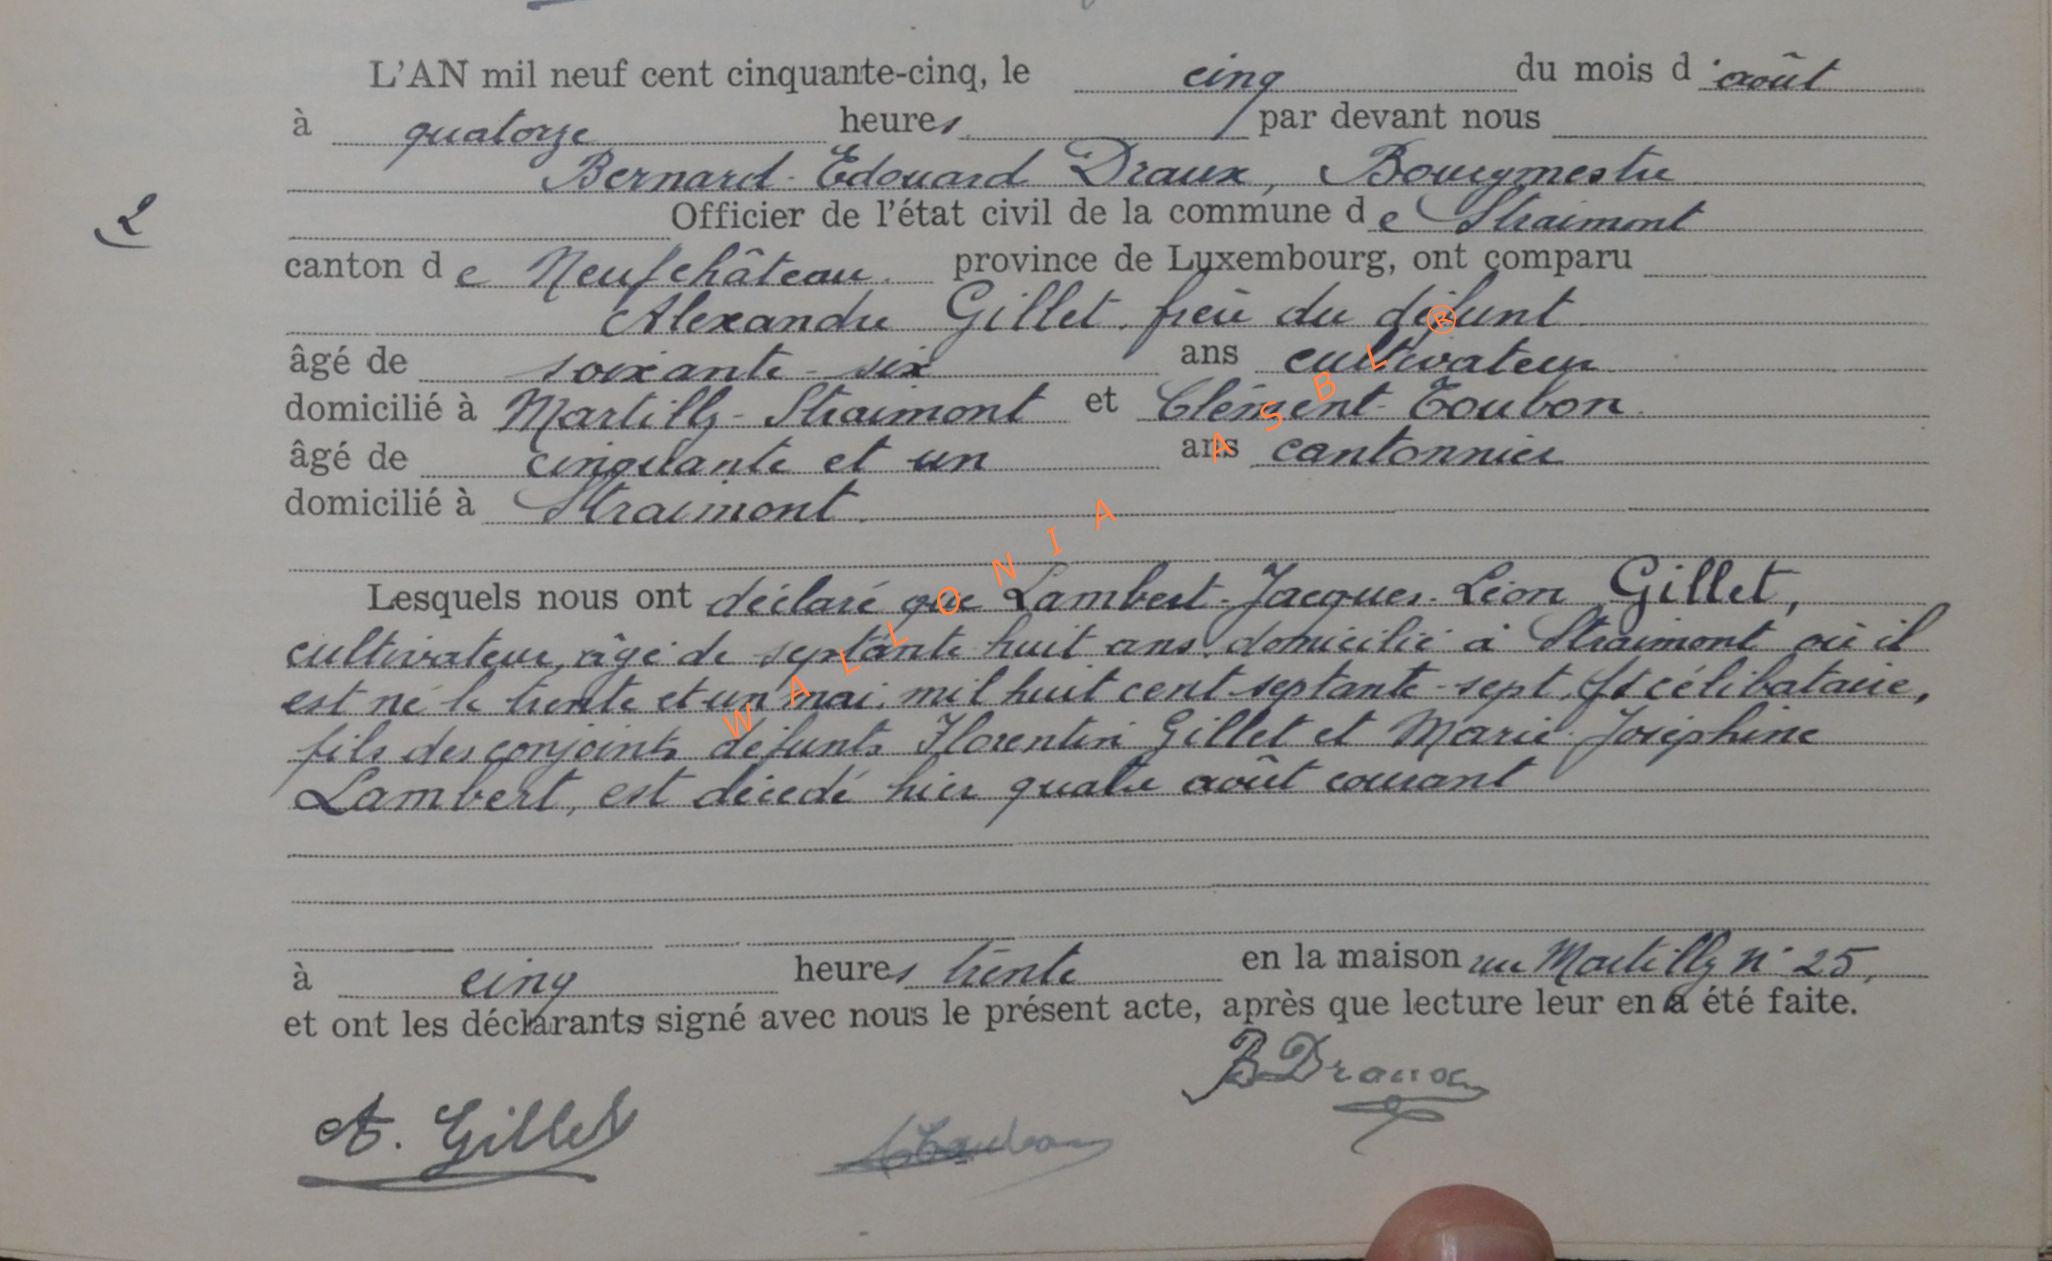 L'AN mil neuf cent cinquante-cinq, le cinq du mois d'août
à quatorze heures par devant nous
Bernard-Edouard Draux, Bourgmestre
2 Officier de l'état civil de la commune de Straimont
canton de Neufchâteau. province de Luxembourg, ont comparu
Alexandre Gillet, frère du défunt.
âgé de soixante-six ans cultivateur
domicilié à Martilly-Straimont et Clément Toubon.
âgé de cinquante et un ans cantonnier
domicilié à Straimont.
Lesquels nous ont déclaré que Lambert-Jacques-Léon Gillet,
cultivateur, âgé de septante huit ans, domicilié à Straimont où il
est né le trente et un mai, mil huit cent septante-sept, célibataire,
fils des conjoints défunts Florentin Gillet et Marie-Joséphine
Lambert, est décédé hier quatre août courant
à cinq heures trente en la maison Martilly n° 25,
et ont les déclarants signé avec nous le présent acte, après que lecture leur en a été faite.
B Draux
A. Gillet
WALLONIA ASBL ®